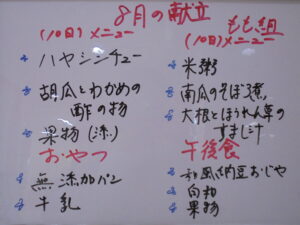 8月の献立
(10日)メニュー
ハヤシシチュー
胡瓜とわかめの
酢の物
果物(添)
おやつ
無添加パン
牛乳
もも組
(10日)メニュー
米粥
南瓜のそぼろ煮
大根とほうれん草の
すまし汁
午後食
和風納豆おじや
白和
果物